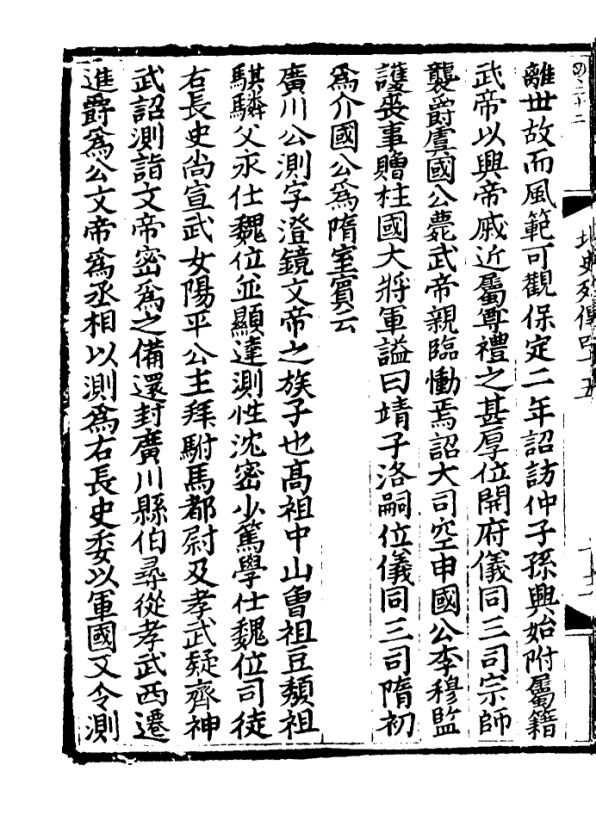 離世故而風範可觀保定二年詔訪仲子孫興始附屬籍
武帝以興帝戚近屬尊禮之甚厚位開府儀同三司宗師
襲爵虞國公薨武帝親臨慟焉詔大司空申國公李穆監
護喪事贈柱國大將軍謚曰靖子洛嗣位儀同三司隋初
爲介國公爲隋室賓云
廣川公測字澄鏡文帝之族子也高祖中山曾祖豆頹祖
騏驎父永仕魏位並顯達測性沈密少篤學仕魏位司徒
右長史尚宣武女陽平公主拜駙馬都尉及孝武疑齊神
武詔測詣文帝密爲之備還封廣川縣伯尋從孝武西遷
進爵爲公文帝爲丞相以測爲右長史委以軍國又令測